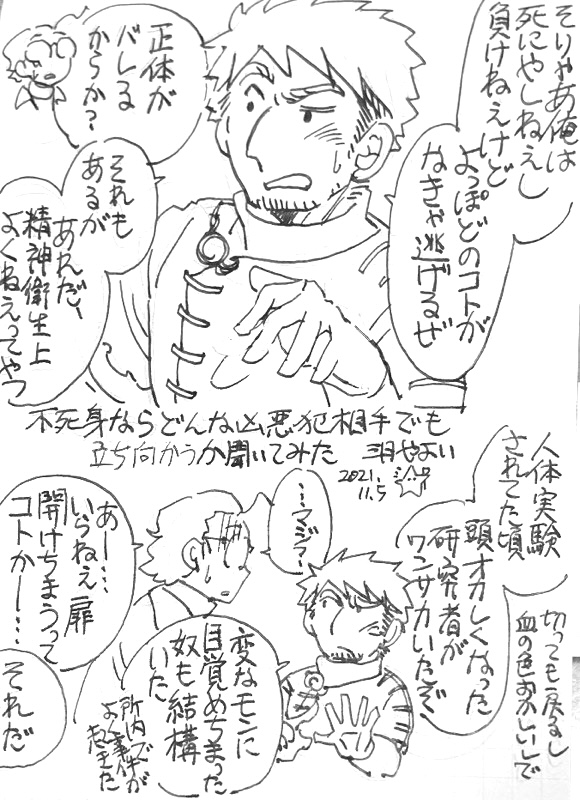 そりゃあ俺は
死にやしねえし
負けねえけど
よっぽどのコトが
なきゃ逃げるぜ
正体が
バレる
からか?
それも
あるが
あれだ、
精神衛生上
よくねえってやつ
不死身ならどんな凶悪犯相手でも
立ち向かうか聞いてみた
2021.
11.5
人体実験
されてた頃
切っても戻るし
血の色おかしいしで
頭オカしくなった
研究者が
ワンサカいたぞ
…マジかー
変なモンに
目覚めちまった
奴も結構
いた
所内で事件が
よく起きた
あー…
いらねえ扉
開けちまうって
コトかー…
それだ